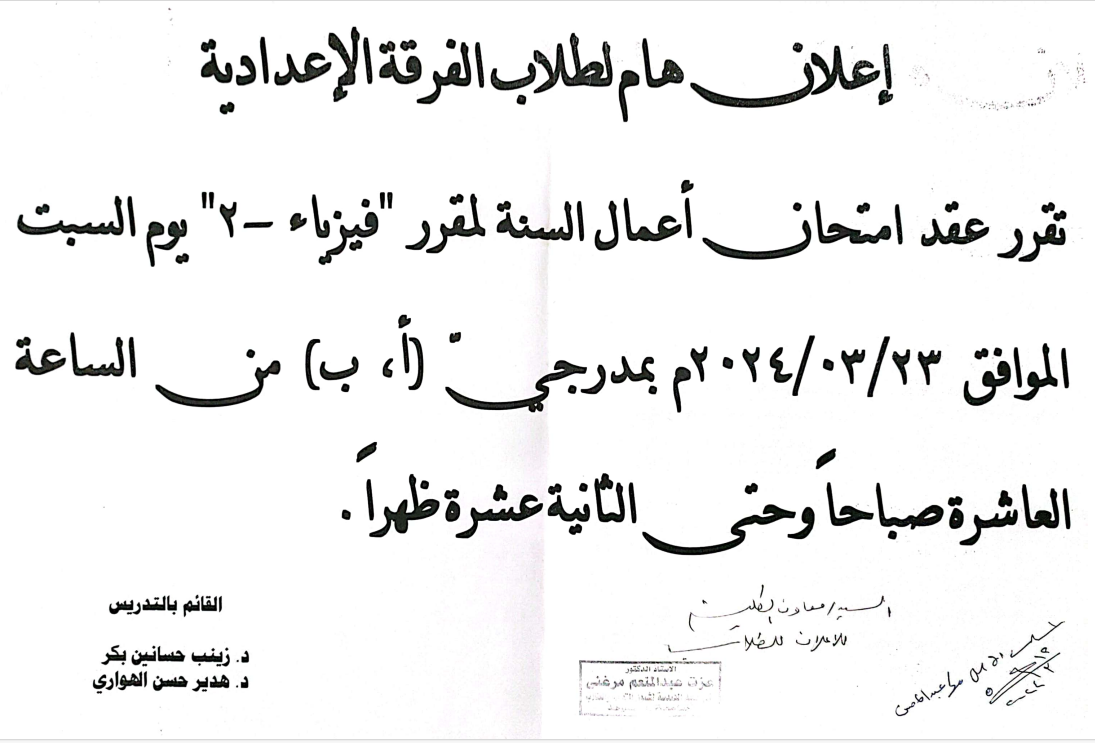 إعلان هام لطلاب الفرقة الإعدادية
تقرر عقد امتحان أعمال السنة لمقرر "فيزياء -٢" يوم السبت
الموافق ٢٠٢٤/٠٣/٢٣م بمدرجيّ (أ، ب) من الساعة
العاشرة صباحاً وحتى الثانية عشرة ظهراً.
القائم بالتدريس
د. زينب حسانين بكر
د. هدير حسن الهواري
السيد/ معاون الكلية
للاعلان للطلاب
الاستاذ الدكتور
عزت عبدالمنعم مرغنى